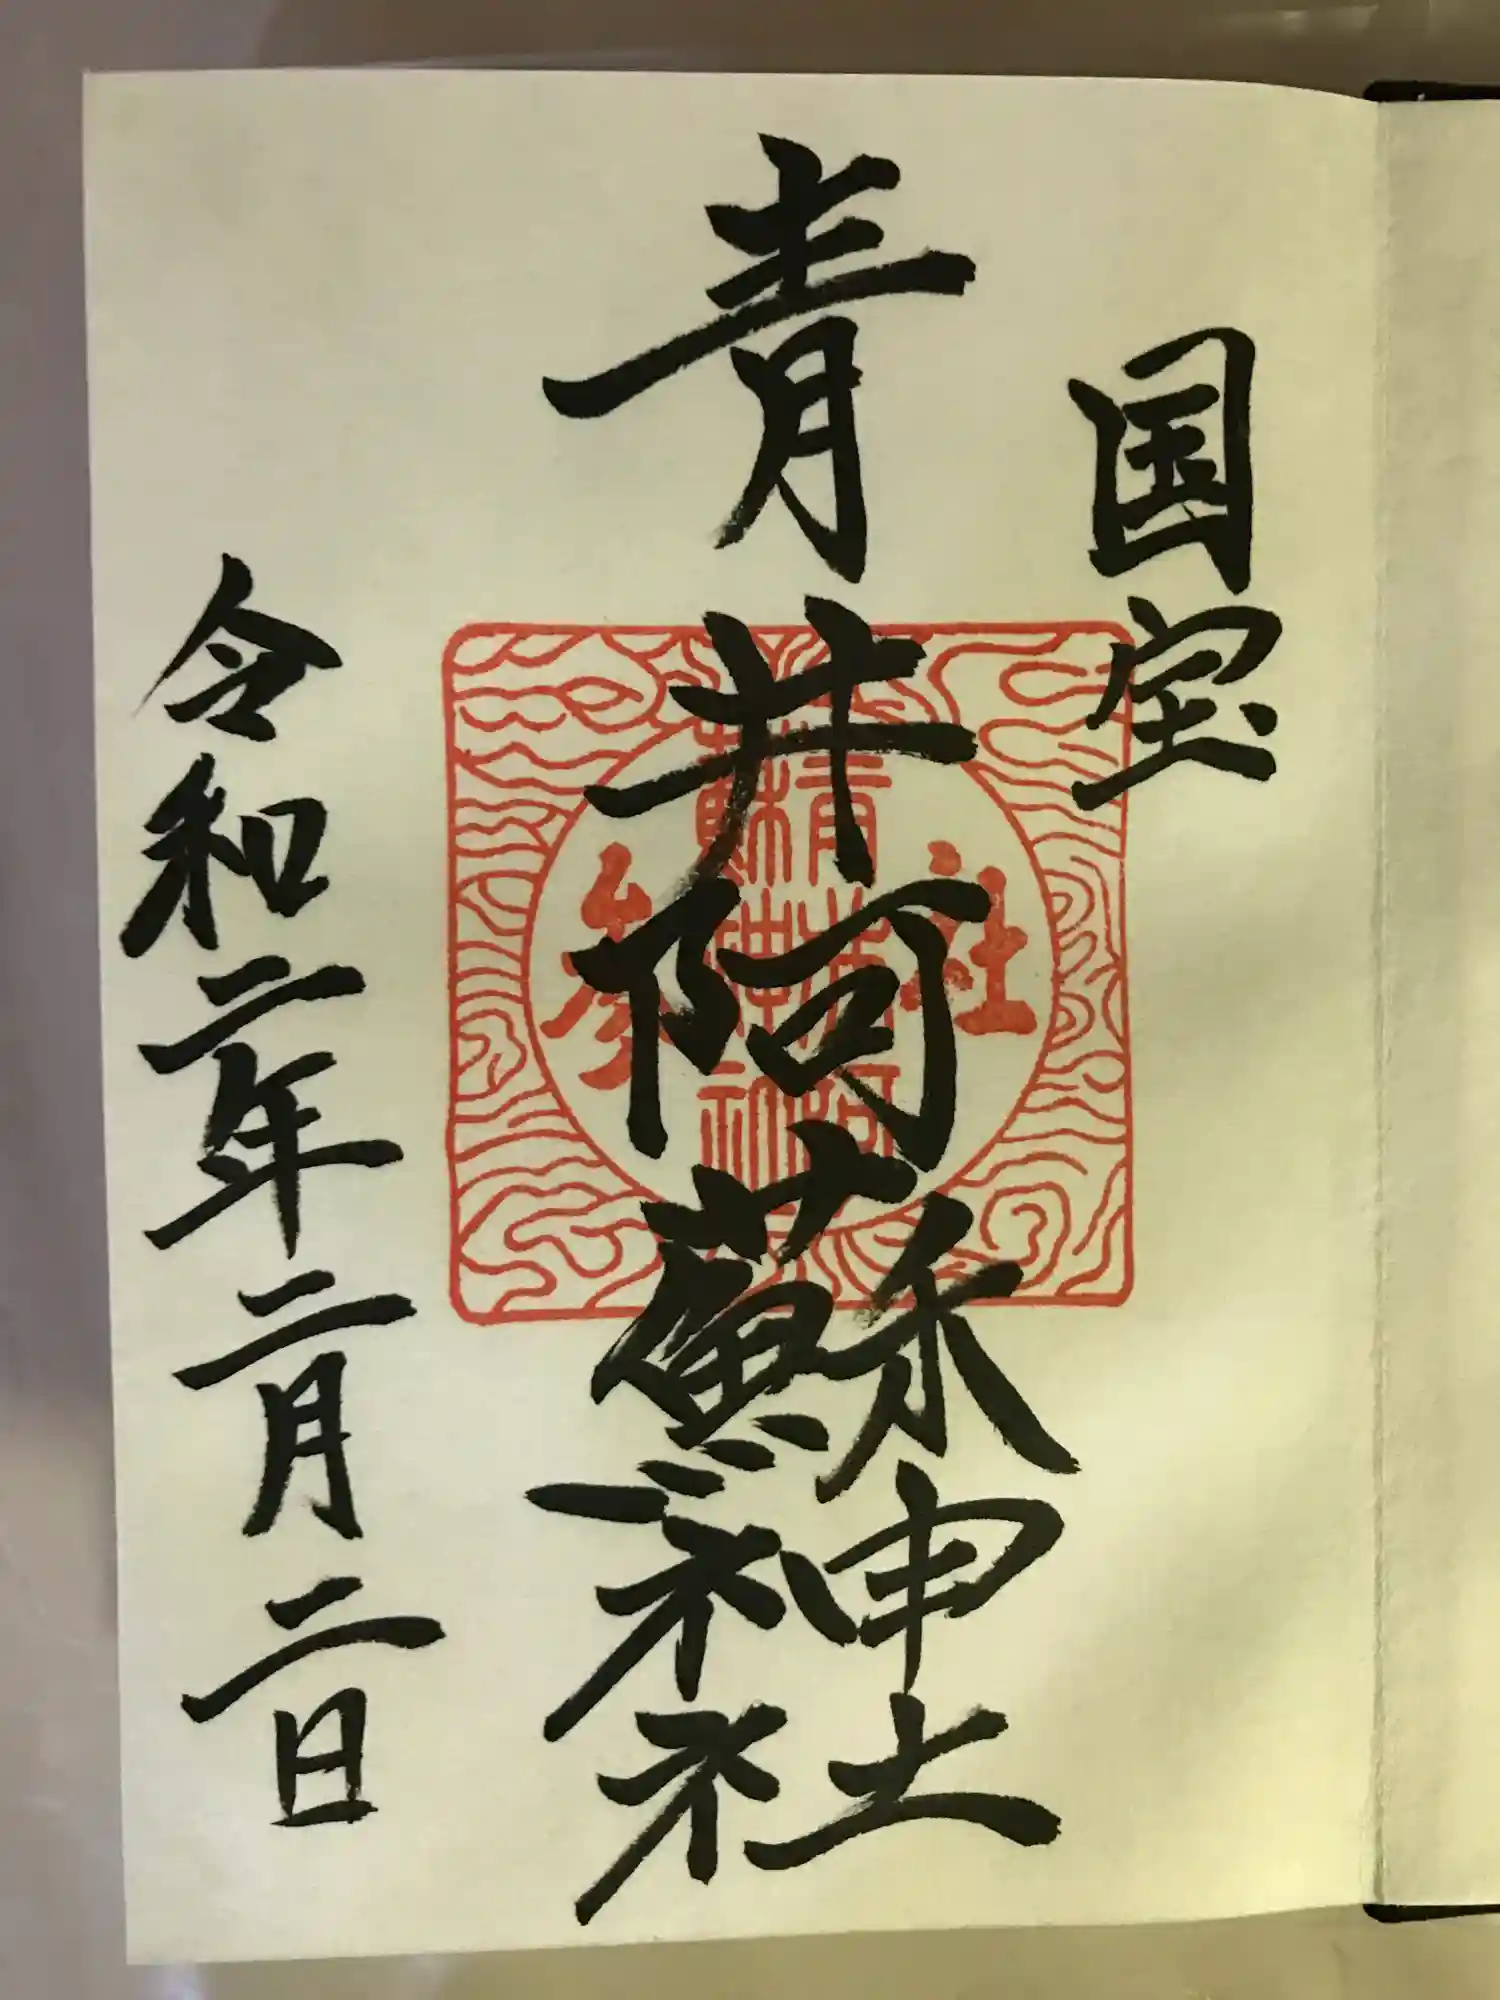 国宝
青井阿蘇神社
令和二年二月二日
社参
青井阿
蘇神社